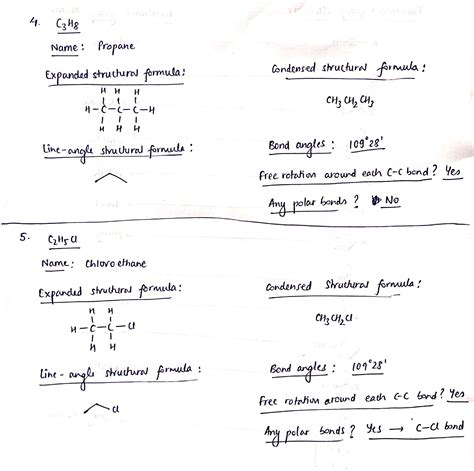 4. C3H8
Name: Propane
Expanded structural formula:
H H H
H-C-C-C-H
H H H
Condensed structural formula:
CH3 CH2 CH3
Line-angle structural formula:
Bond angles: 109°28'
Free rotation around each C-C bond? Yes
Any polar bonds? No
5. C2H5Cl
Name: Chloroethane
Expanded structural formula:
H H
H-C-C-Cl
H H
Condensed structural formula:
CH3 CH2 Cl
Line-angle structural formula:
Cl
Bond angles: 109°28'
Free rotation around each C-C bond? Yes
Any polar bonds? Yes → C-Cl bond